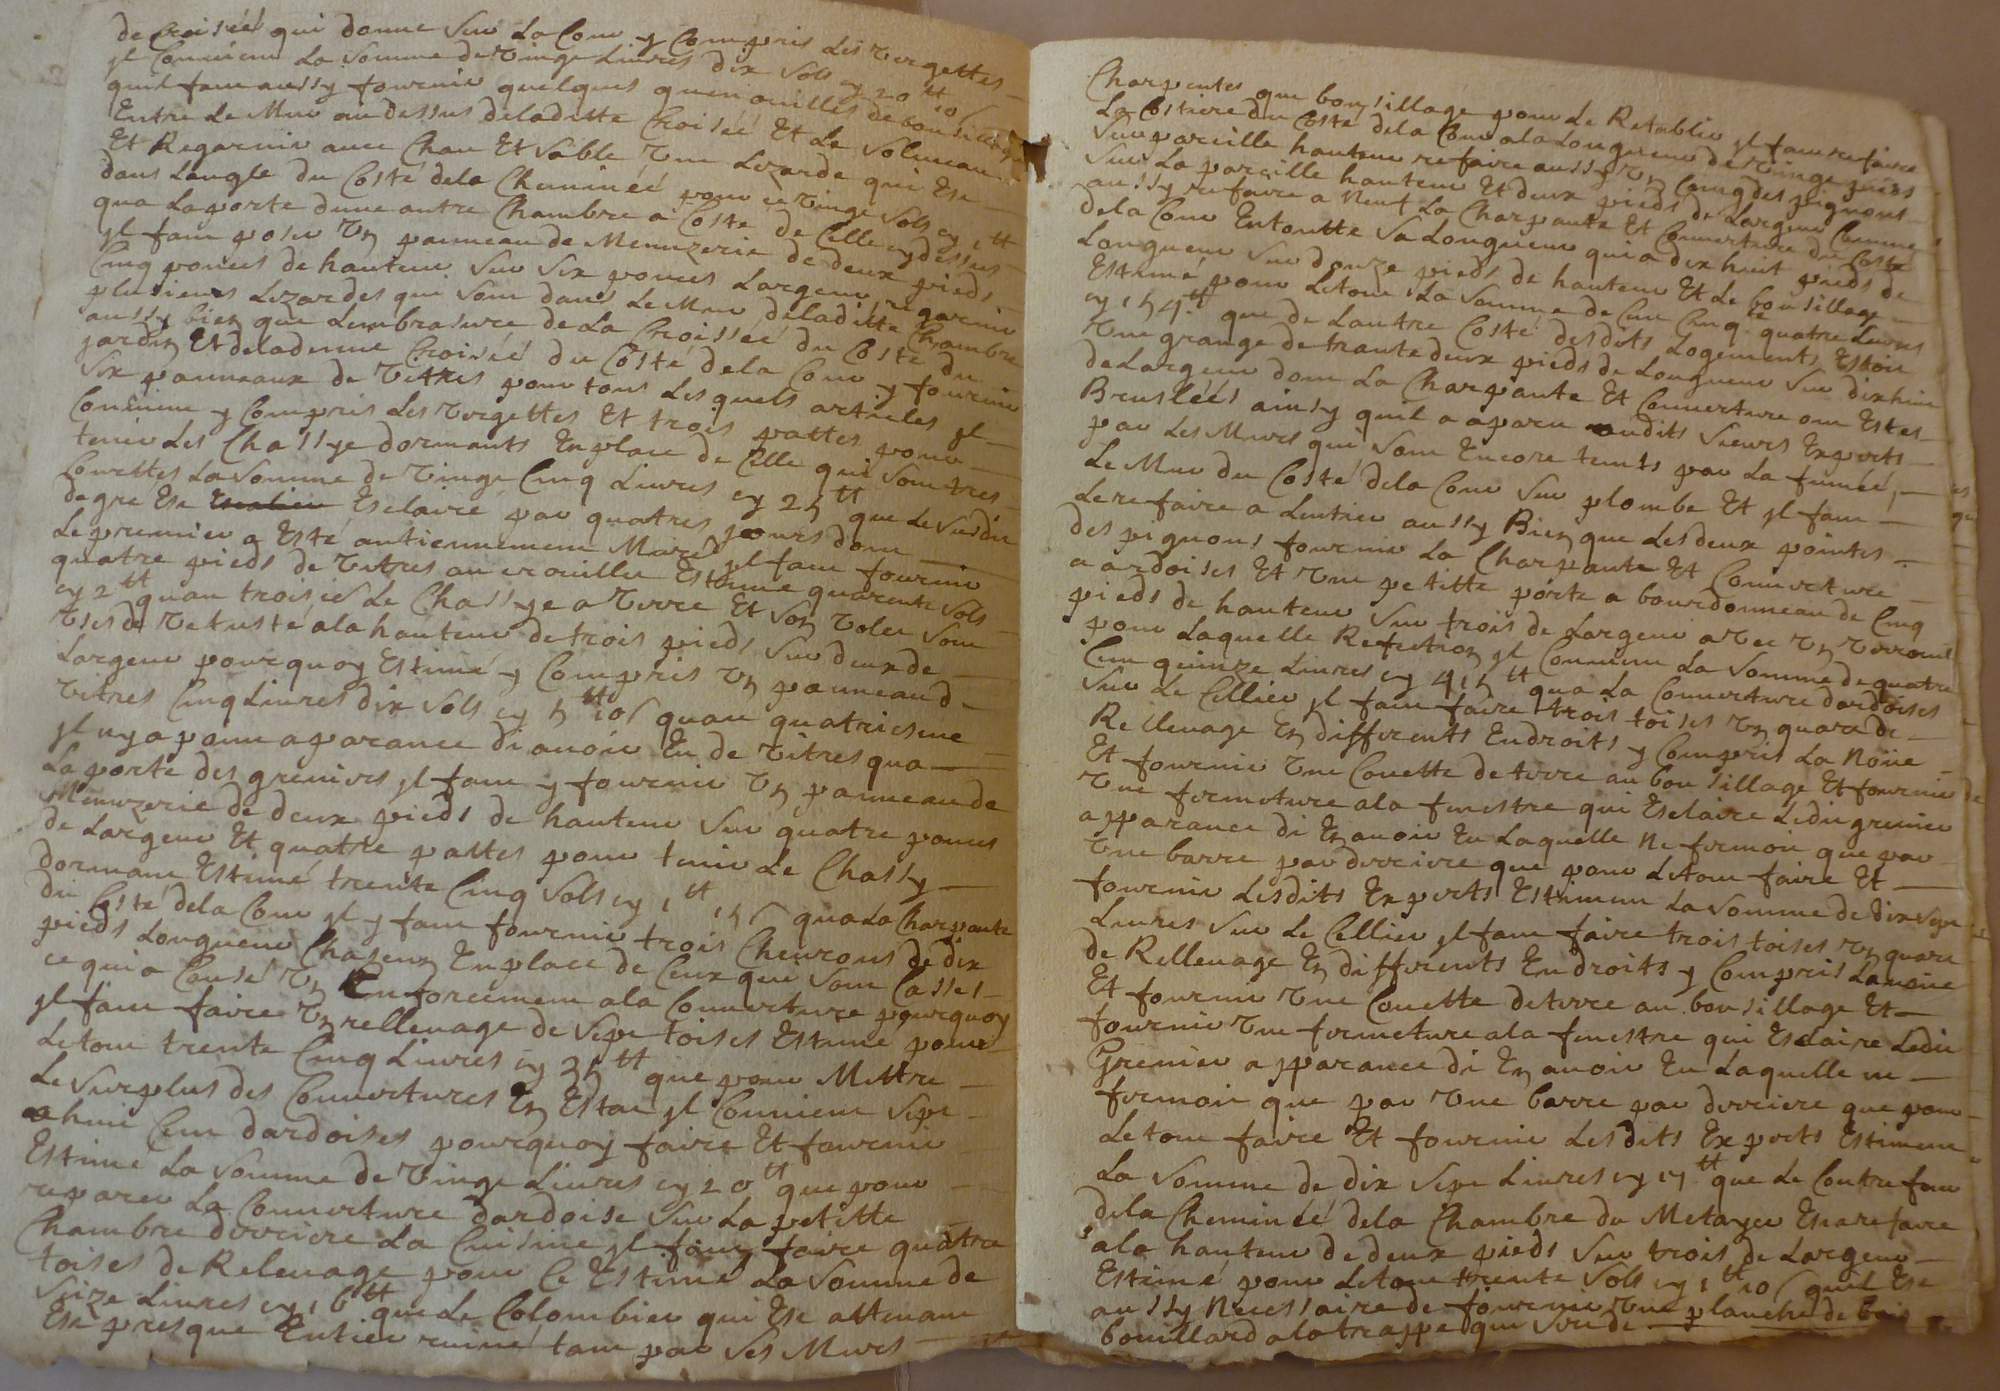 de Croisée qui donne sur la Cour y Compris les vergettes
jl Convient la somme de vingt Livres dix sols cy 20 tt 10 s
quil faut aussy fournir quelques quenouilles de bousillage
Entre le Mur au dessus de laditte Croisée Et le soliveau
Et Regarnir avec Chau Et sable vne Lezarde qui Est
dans Langle du Costé dela Cheminée pour ce vingt sols cy 1 tt
qua la porte dune autre Chambre a Costé de Celle cy dessus
jl faut poser vn panneau de Menuzerie de deux pieds
Cinq pouces de hauteur sur six pouces Largeur regarnir
plusieurs Lezardes qui sont dans le Mur deladitte Chambre
aussy bien que Lembrasure de la Croissée du Costé du
jardin Et delademie Croisée du Costé dela Cour y fournir
six panneaux de vittres pour tous lesquels articles jl
Convient y Compris les vergettes Et trois pattes pour
tenir les Chassye dormants En place de Celle qui sont tres
Courttes la somme de vingt Cinq Livres cy 25 tt que le susdit
degre Est Esclairé par quatres jours dont
le premier a Esté antiennement Muré jl faut fournir
quatre pieds de vitres au Estimé quarente sols
cy 2 tt quau troisie le Chassye a verre Et son volet sont
vses de vetusté ala hauteur de trois pieds sur deux de
Largeur pourquoy Estimé y Compris vn panneau d
vitres Cinq Livres dix sols cy 5 tt 10 s quau quatriesme
jl ny a point aparance di avoir Eu de vitres qua
la porte des greniers jl faut y fournir vn panneau de
Menuzerie de deux pieds de hauteur sur quatre pouces
de Largeur Et quatre pattes pour tenir le Chassy
dormant Estimé trente Cinq sols cy 1 tt 15 s qua la Charpante
du Costé dela Cour jl y faut fournir trois Chevrons de dix
pieds Longueur Chaseun En place de Ceux que sont Casses
ce qui a Causé vn Enforcement ala Couverture pourquoy
jl faut faire vn rellevage de sept toises Estimé pour
letout trente Cinq Livres cy 35 tt que pour Mettre
le surplus des Couvertures En Estat jl Convient sept
a huit Cent dardoises pourquoy faire Et fournir
Estimé la somme de vingt Livres cy 20 tt que pour
reparer la Couverture dardoise sur la petitte
Chambre derriere la Cuisine jl faut faire quatre
toises de Relevage pour Ce Estimé la somme de
seize Livres cy 16 tt que le Colombier qui Est attenant
Est presque Entier ruiné tant par ses Murs
Charpentes que bousillage pour le Retablir jl faut refaire
la Costiere du Costé dela Cour ala Longueur de vingt pieds
sur pareille hauteur refaire aussy vn Coing des pignons
sur la pareille hauteur Et deux pieds de Largeur Comme
aussy refaire a neuf la Charpante Et Couverture du Costé
dela Cour Entoutte sa Longueur qui a dix huit pieds de
Longueur sur douze pieds de hauteur Et le bousillage
Estimé pour letout la somme de Cent Cinq te quatre Livres
cy 154 tt que de Lautre Costé desdits Logements Estoit
vne grange de trante deux pieds de Longueur sur dixhuit
de Largeur dont la Charpante Et Couverture ont Estes
Bruslées ainsy quil a aparu audits sieurs Experts
par les Murs qui sont Encore teints par la fumée,
le Mur du Costé dela Cour sur plombe Et jl faut
le refaire a Lentier aussy Bien que les deux pointes
des pignons, fournir la Charpante Et Couverture
a ardoises Et vne petitte porte a bourdonneau de Cinq
pieds de hauteur sur trois de Largeur avec vn verrouil
pour Laquelle Refection jl Convient la somme de quatre
Cent quinze Livres cy 415 tt qua la Couverture dardoises
sur le Cellier jl faut faire trois toises vn quart de
Rellevage En differents Endroits y Compris la Noüe
Et fournir vne Couette de terre au bousillage Et fournir
vne fermeture ala fenestre qui Esclaire ledit grenier
apparance di En avoir Eu laquelle ne fermoit que par
vne barre par derriere que pour letout faire Et
fournir lesdits Experts Estiment la somme de dix sept
Livres sur le Cellier jl faut faire trois toises vn quart
de Rellevage En differents Endroits y Compris la noüe
Et fournir vne Couette de terre au bousillage Et
fournir vne fermeture ala fenestre qui Esclaire ledit
Grenier apparance di En avoir Eu Laquelle ne
fermoit que par vne barre par derriere que pour
letout faire Et fournir lesdits Experts Estiment
la somme de dix sept Livres cy 17 tt que le Contrefeu
dela Cheminée dela Chambre du Metayer Est a refaire
ala hauteur de deux pieds sur trois de Largeur
Estimé pour letout trente sols cy 1 tt 10 s quil Est
aussy Necessaire de fournir vne planche de bois
bouillard ala trappe qui sert de